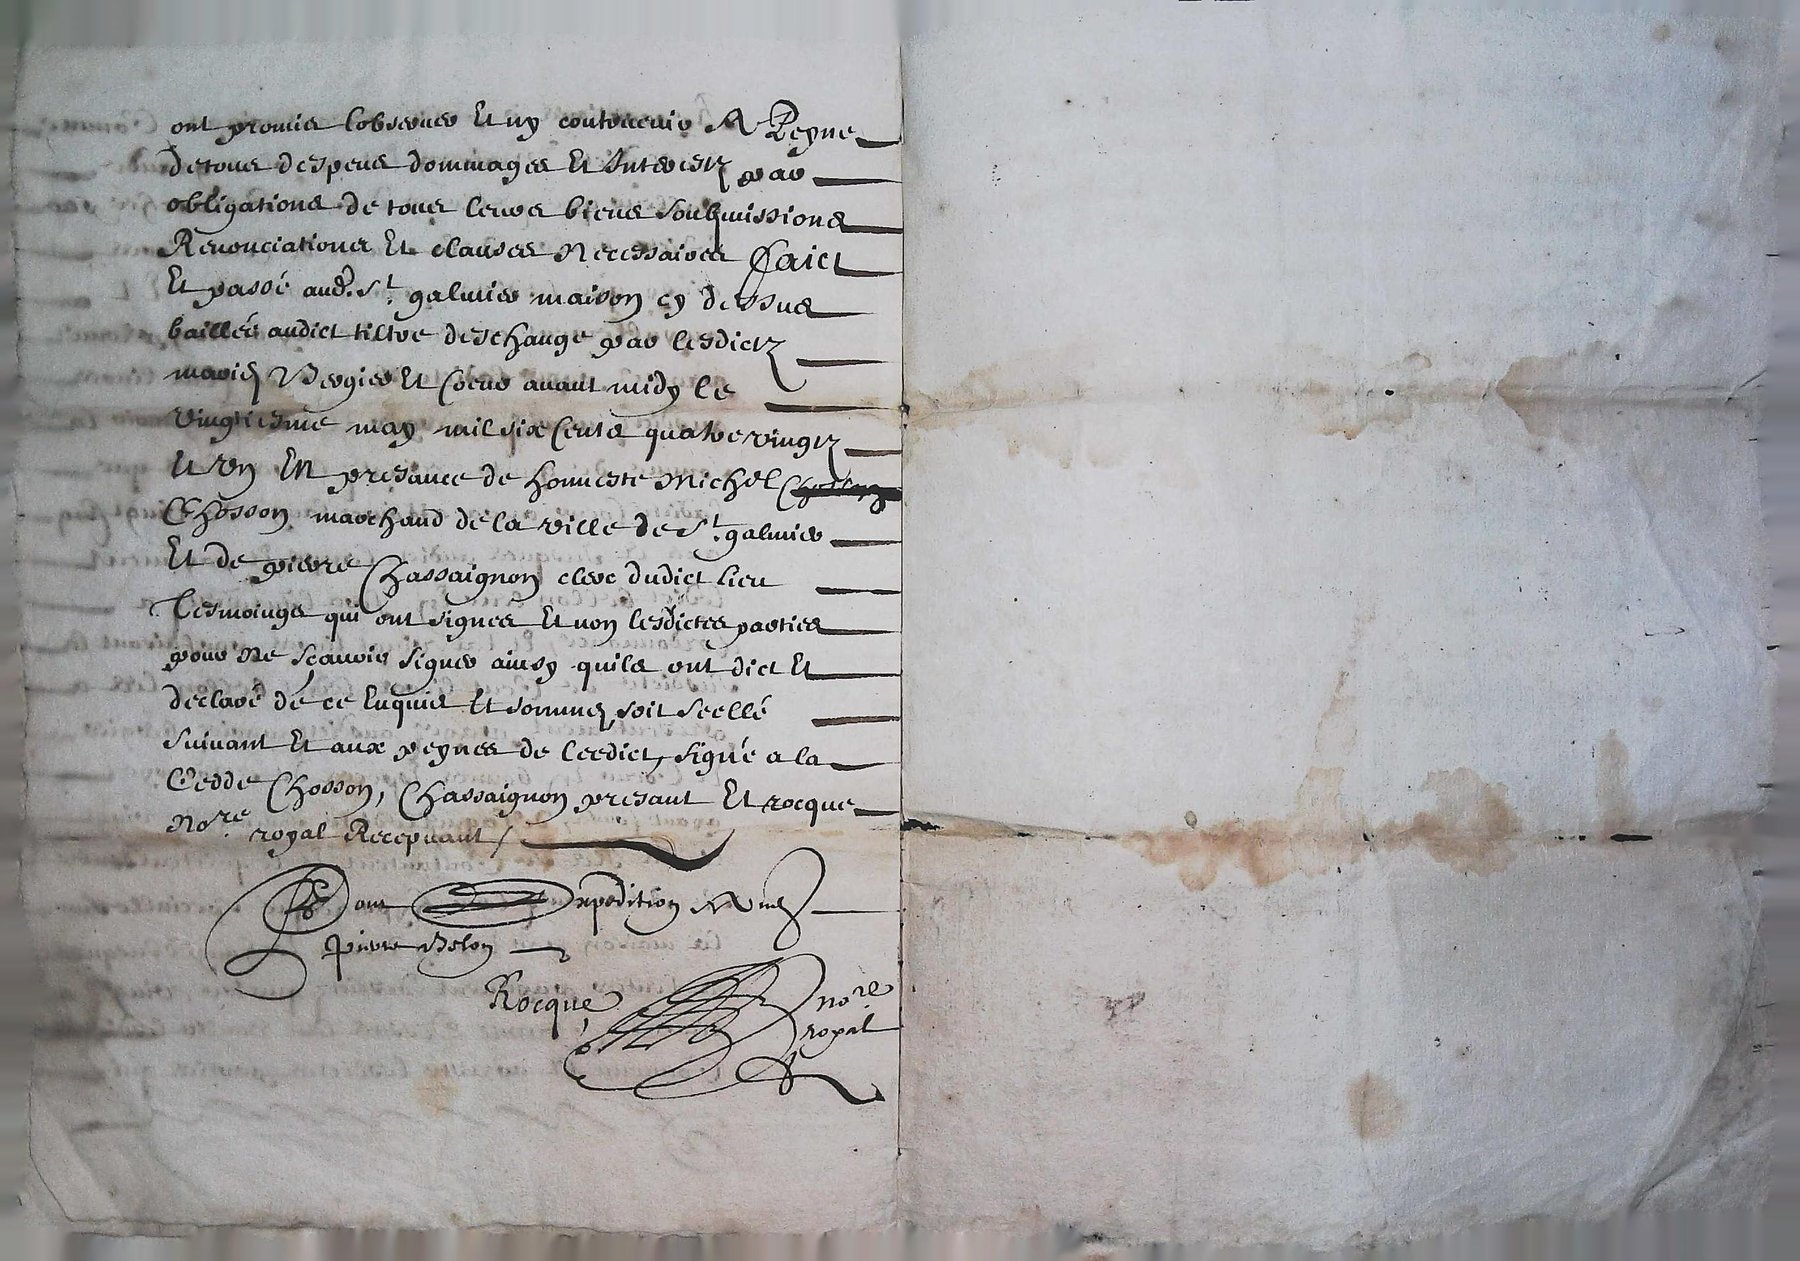 ont promis lobserver Et ny contrevenir A Peyne
de tous despens dommages Et Interestz par
obligations de tous leurs biens soubmissions
Renonciations Et clauses Necessaires Faict
Et passé aud. St. galmier maison cy dessus
baillée audict tiltre deschange par lesdictz
mariés Vergier Et Coeur avant midy le
vingtiesme may mil six Cents quatre vingtz
Et Un En presance de honneste Michel
Chosson marchand de la ville de St. galmier
Et de pierre Chassaignon clerc dudict lieu
Tesmoings qui ont signes Et non lesdictes parties
pour Ne sçavoir signer ainsy quils ont dict Et
declaré de ce Enquis Et sommés, soit scellé
suivant Et aux peynes de Leedict, signé a la
Cedde Chosson, Chassaignon presant Et rocque
Nore royal Recepvant /
Pour Expedition Aud
pierre Belon
Rocque nore
royal